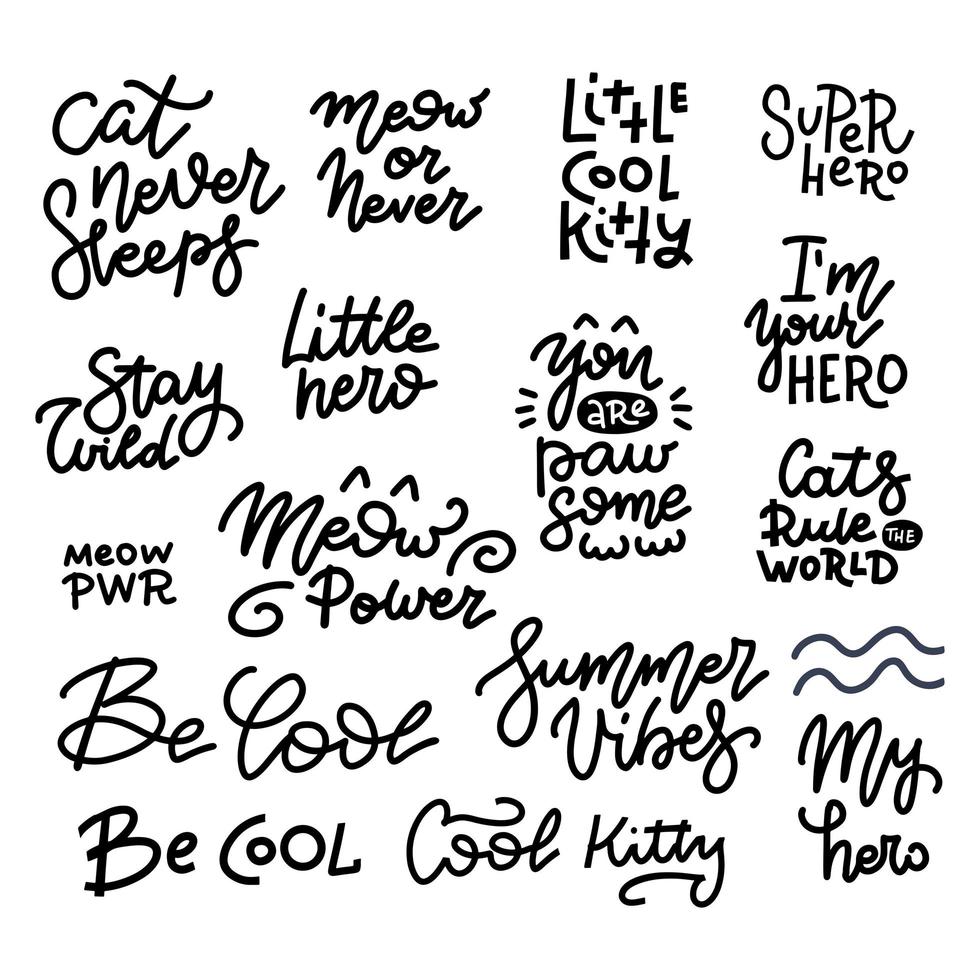 Cat
never
Sleeps
meow
or
Never
LittLE
COOL
Kitty
SUPER
HERO
Little
hero
I'm
your
HERO
Stay
Wild
you
ARE
paw
some
Cats
Rule THE
WORLD
MEOW
PWR
Meow
Power
Be Cool
Summer
Vibes
My
hero
Be COOL
Cool Kitty